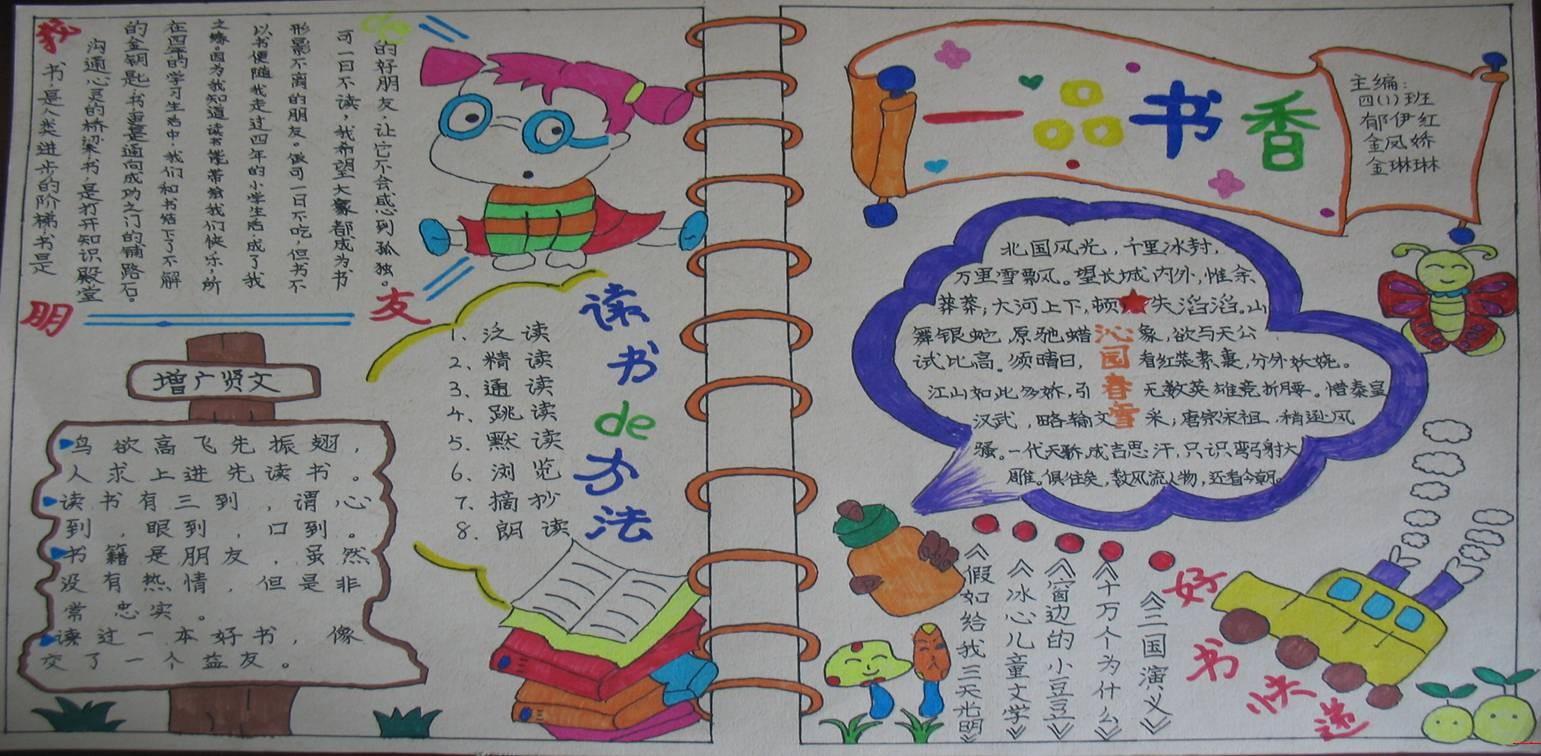 我
de
朋
友
书,是人类进步的阶梯;书是
沟通心灵的桥梁;书,是打开知识殿堂
的金钥匙;书,更是通向成功之门的铺路石。
在四年的学习生活中,我们和书结下了不解
之缘。因为我知道读书能带给我们快乐,所
以书便随我走过四年的小学生活,成了我
形影不离的朋友。做可一日不吃,但书不
可一日不读,我希望大家都成为书
的好朋友,让它不会感到孤独。
增广贤文
鸟欲高飞先振翅,
人求上进先读书。
读书有三到,谓心
到,眼到,口到。
书籍是朋友,虽然
没有热情,但是非
常忠实。
读过一本好书,像
交了一个益友。
读书de方法
1. 泛读
2. 精读
3. 通读
4. 跳读
5. 默读
6. 浏览
7. 摘抄
8. 朗读
一品书香
主编:
四(1)班
郁伊红
金凤娇
金琳琳
沁园春雪
北国风光,千里冰封,
万里雪飘风。望长城内外,惟余
莽莽;大河上下,顿失滔滔。山
舞银蛇,原驰蜡象,欲与天公
试比高。须晴日,看红装素裹,分外妖娆。
江山如此多娇,引无数英雄竞折腰。惜秦皇
汉武,略输文采;唐宗宋祖,稍逊风
骚。一代天骄,成吉思汗,只识弯弓射大
雕。俱往矣,数风流人物,还看今朝。
《假如给我三天光明》
《冰心儿童文学》
《窗边的小豆豆》
《十万个为什么》
《三国演义》
好书快递